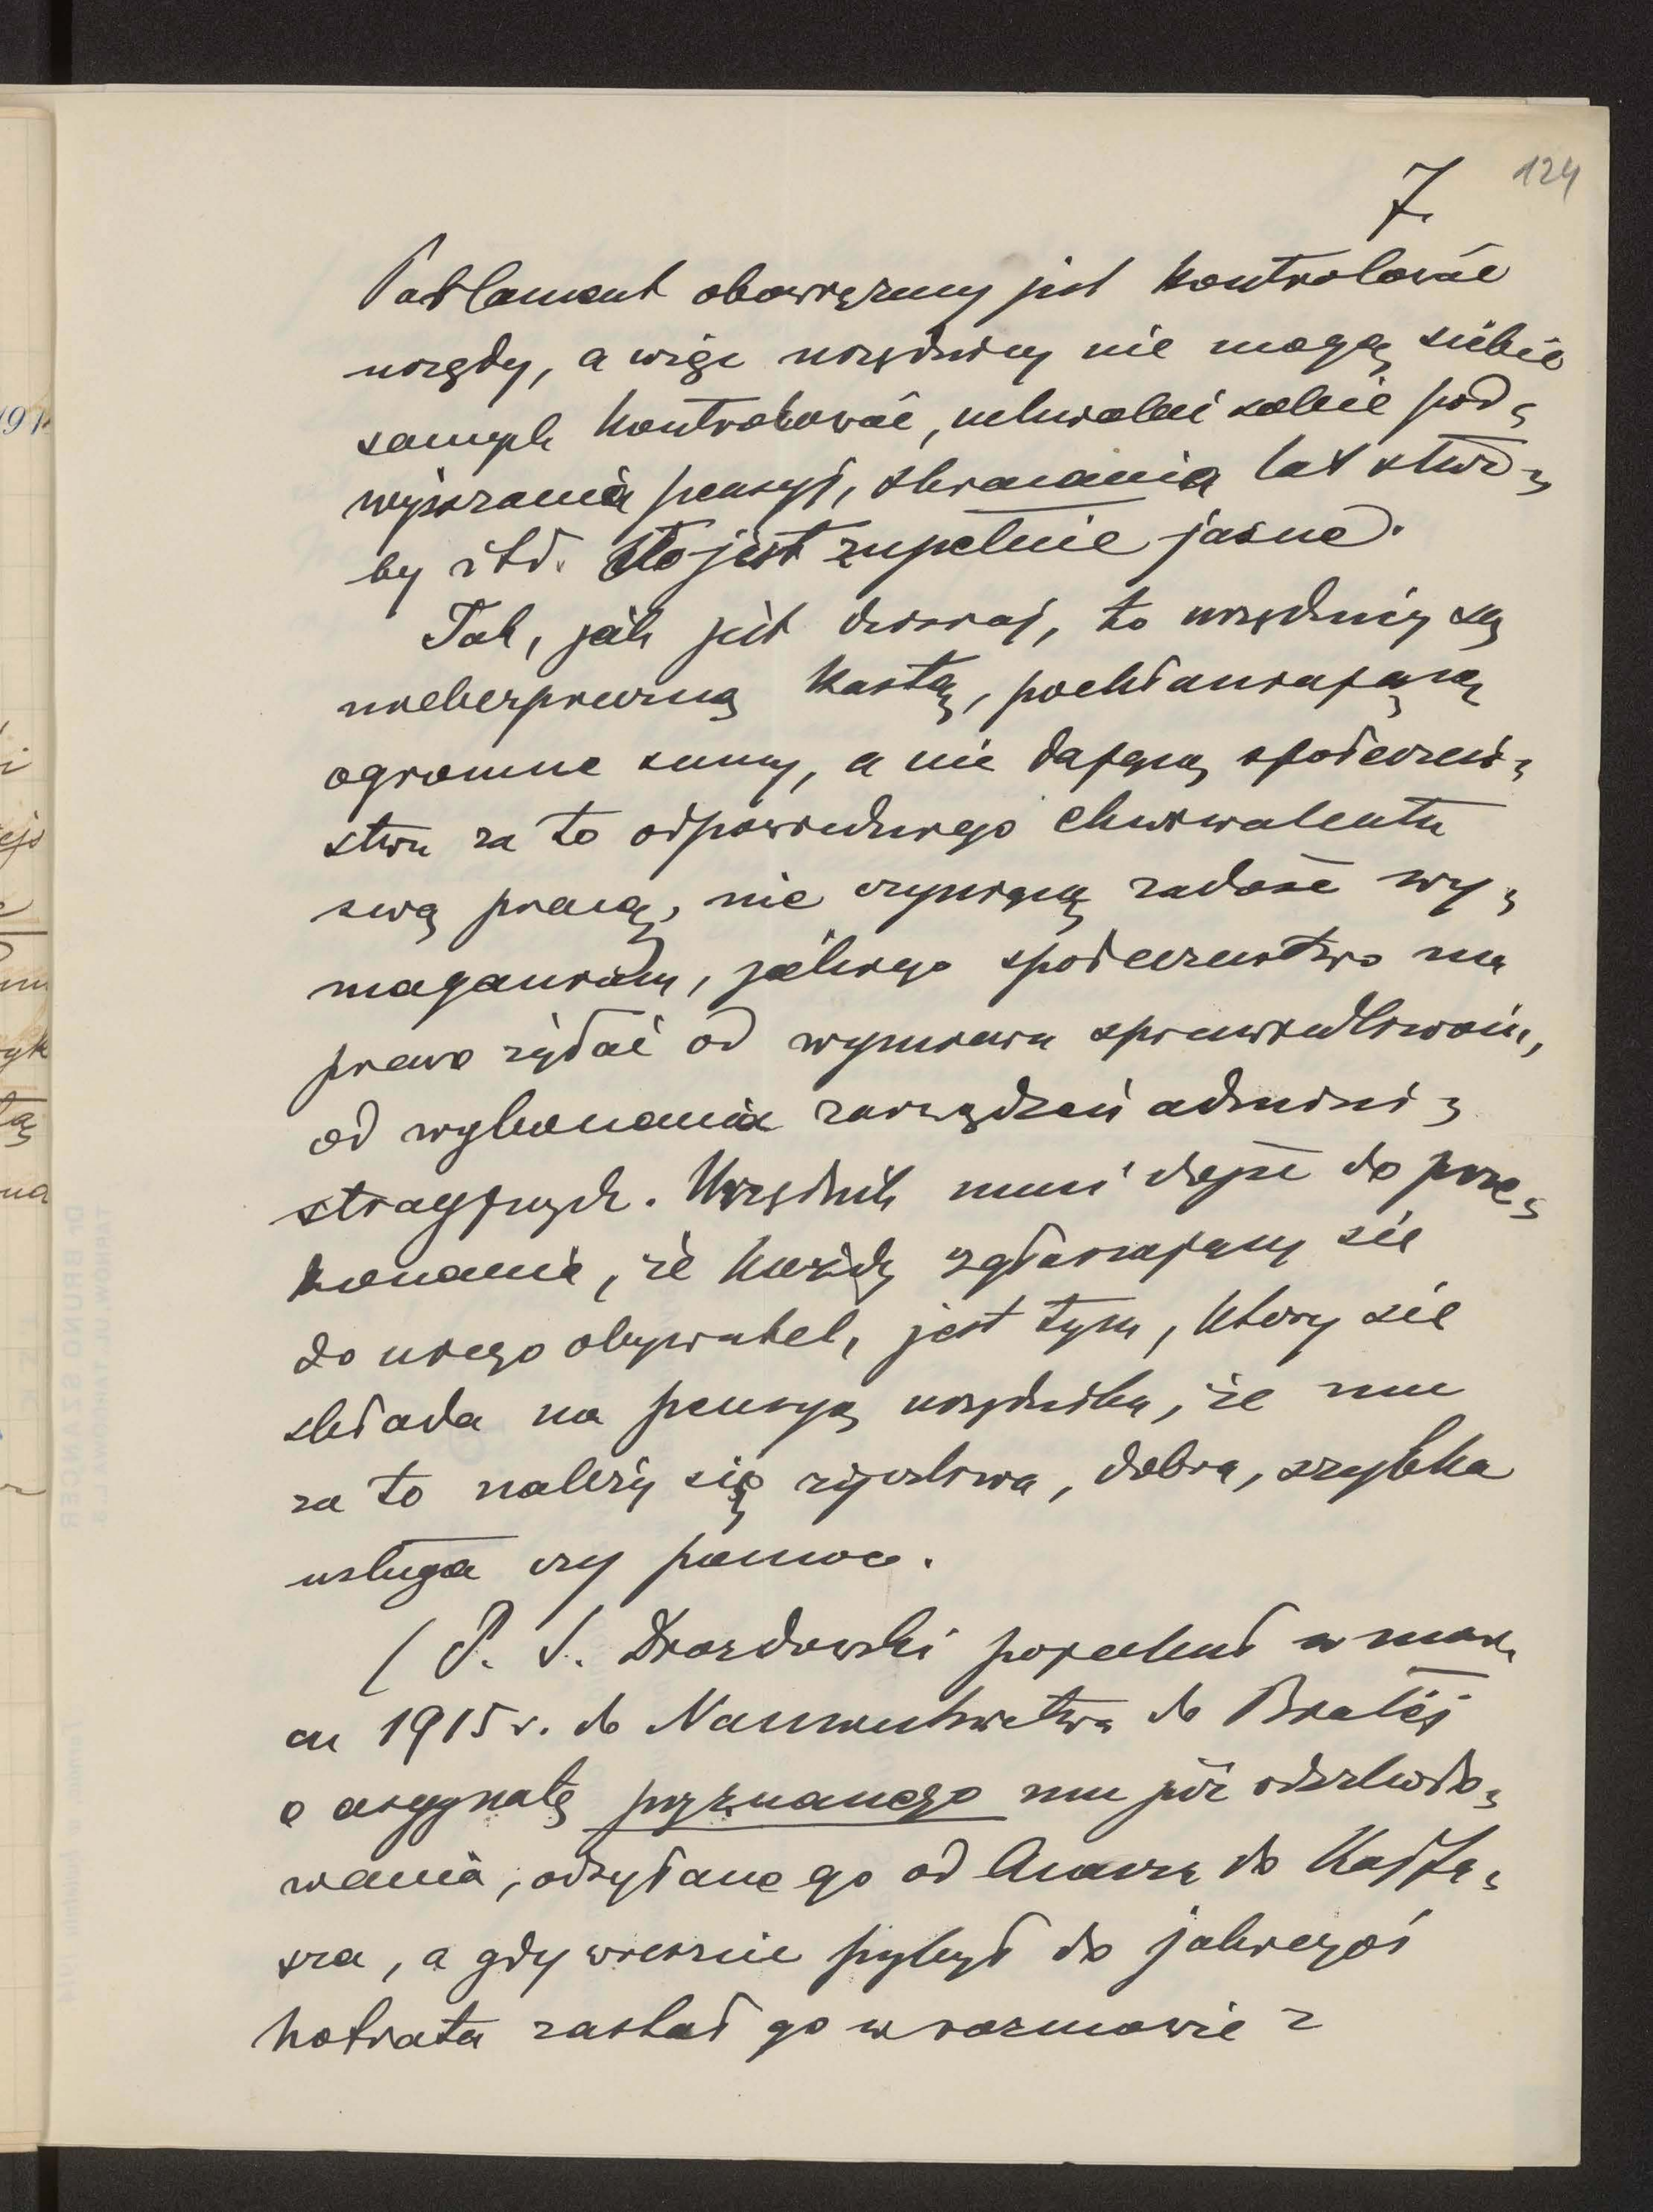 124
7.
Parlament obowiązany jest kontrolować
urzędy, a więc urzędnicy nie mogą siebie
samych kontrolować, uchwalać sobie pod=
wyższania pensyj, skracania lat służ=
by itd. To jest zupełnie jasne.
Tak, jak jest dzisiaj, to urzędnicy są
niebezpieczną kastą, pochłaniającą
ogromne sumy, a nie dającą społeczeń=
stwu za to odpowiedniego ekwiwalentu
swą pracą, nie czyniącą zadość wy=
maganiom, jakiego społeczeństwo ma
prawo żądać od wymiaru sprawiedliwości,
od wykonania zarządzeń admini=
stracyjnych. Urzędnik musi dojść do prze=
konania, że każdy zgłaszający się
do niego obywatel, jest tym, który się
składa na pensyę urzędnika, że mu
za to należy się życzliwa, dobra, szybka
usługa czy pomoc.
(P. S. Drozdowski pojechał w mar=
cu 1915 r. do Namiestnictwa do Białej
o asygnatę przyznanego mu już odszkodo=
wania, odsyłano go od Anasza do Kajfa=
sza, a gdy wreszcie przybył do jakiegoś
hofrata zastał go w rozmowie z